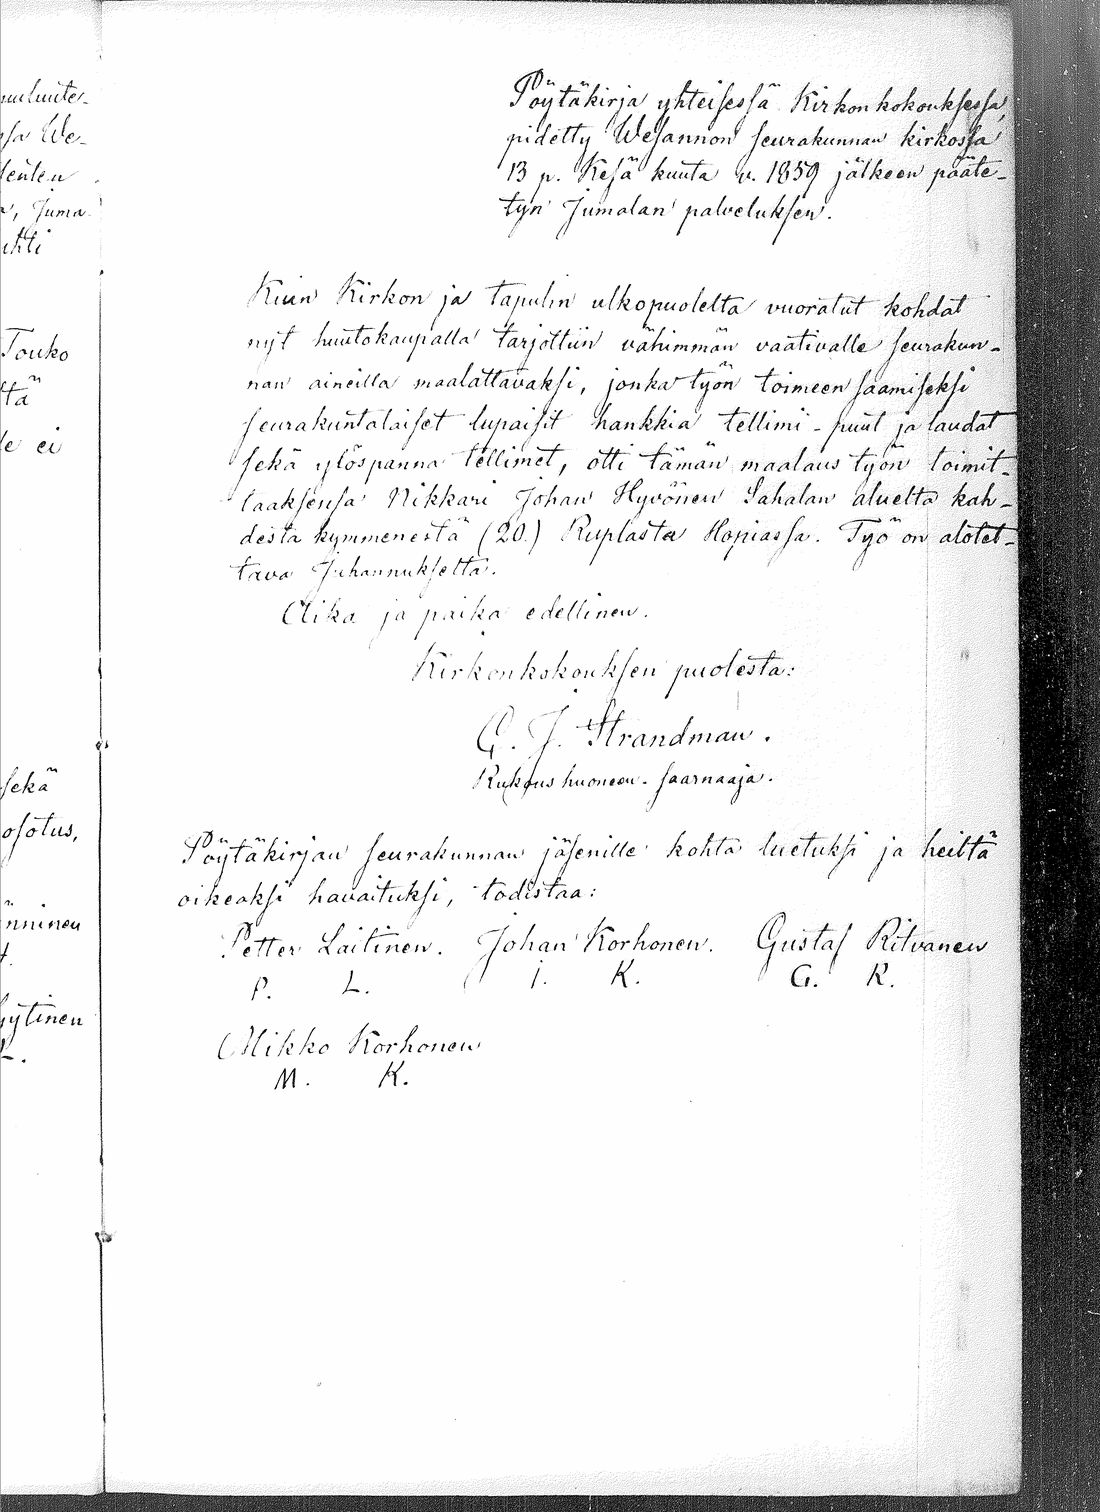 Pöytäkirja yhteisessä Kirkonkokouksessa,
pidetty Wesannon seurakunnan kirkossa
13 p. Kesä kuuta v. 1859 jälkeen pääte-
tyn Jumalan palveluksen.
Kuin Kirkon ja tapulin ulkopuolelta vuoratut kohdat
nyt huutokaupalla tarjottiin vähimmän vaativalle seurakun-
nan aineilla maalattavaksi, jonka työn toimeen saamiseksi
seurakuntalaiset lupaisit hankkia tellimi-puut ja laudat
sekä ylöspanna tellimet, otti tämän maalaus työn toimit-
taaksensa Nikkari Johan Hyvönen Sahalan aluelta kah-
desta kymmenestä (20.) Ruplasta Hopiassa. Työ on alotet-
tava Juhannukselta.
Aika ja paika edellinen.
Kirkonkokouksen puolesta:
C. J. Strandman.
Rukous huoneen-saarnaaja.
Pöytäkirjan seurakunnan jäsenille kohta luetuksi ja heiltä
oikeaksi havaituksi, todistaa:
Petter Laitinen. Johan Korhonen. Gustaf Ritvanen
P. L. I. K. G. R.
Mikko Korhonen
M. K.
We-
Juma-
Touko
tä
ei
sekä
osotus,
nninen
ytinen